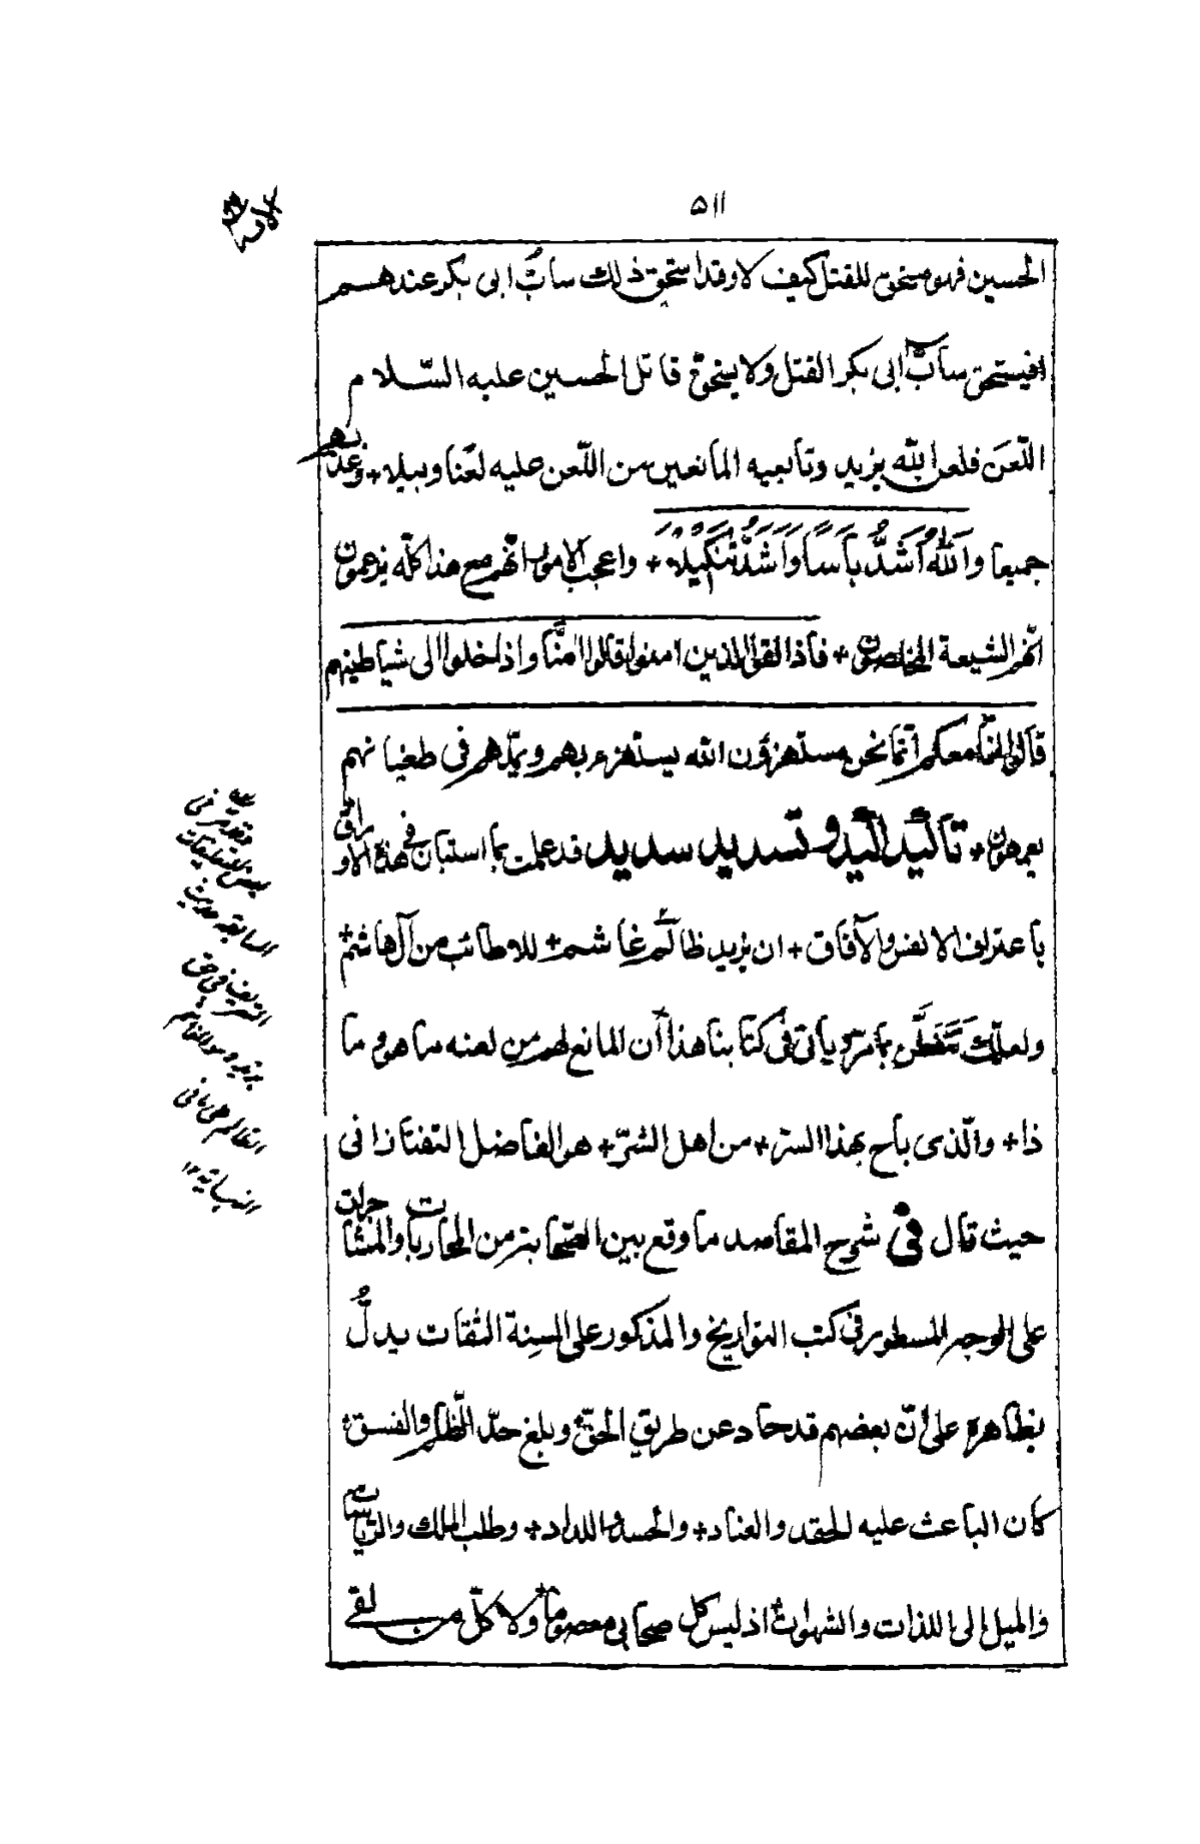 ۵۱۱
الحسين فهو مستحق للقتل كيف لا وقد استحق ذلك سابُّ ابى بكر عندهم
افيستحق سابّ ابى بكر القتل ولا يستحق قاتل الحسين عليه السّلام
اللّعن فلعن الله يزيد وتابعيه المانعين من اللّعن عليه لعنا وبيلا + وعذّبهم
جميعا وَاللهُ اَشَدُّ بَاْسًا وَاَشَدُّ تَنْكِيْلًا + واعجب الامور انّهم مع هذا كلّه يزعمون
انّهم الشيعة المخلصون + فاذا لقوا الذين امنوا قالوا امنّا واذا خلوا الى شياطينهم
قالوا انّا معكم انّما نحن مستهزؤن الله يستهزء بهم ويمدّهم فى طغيانهم
يعمهون + تاكيد اكيد وتسديد سديد قد علمت بما استبان فى هذه الاوراق
باعتراف الانفس والآفاق + ان يزيد ظالم غاشم + للاطائب من آل هاشم +
ولعلّك تتفطّن بما مرّ ويأتى فى كتابنا هذا أن المانع لهم من لعنه ما هو وما
ذا + والّذى باح بهذا السرّ + من اهل الشرّ + هو الفاضل التفتازانى
حيث قال فى شرح المقاصد ما وقع بين الصّحابة من المحاربات والمشاجرات
على الوجه المسطور فى كتب التواريخ والمذكور على السنة الثقات يدلُّ
بظاهره على أنّ بعضهم قد حاد عن طريق الحقّ وبلغ حدّ الظلم والفسق
كان الباعث عليه الحقد والعناد + والحسد واللداد + وطلب الملك والرياسات
والميل الى اللذات والشهوات اذ ليس كل صحابى معصوما ولا كلّ من لقى
وقد مرّ فى
بعض التعليقات
السابقة حديث
الشريف فى حق
يزيد